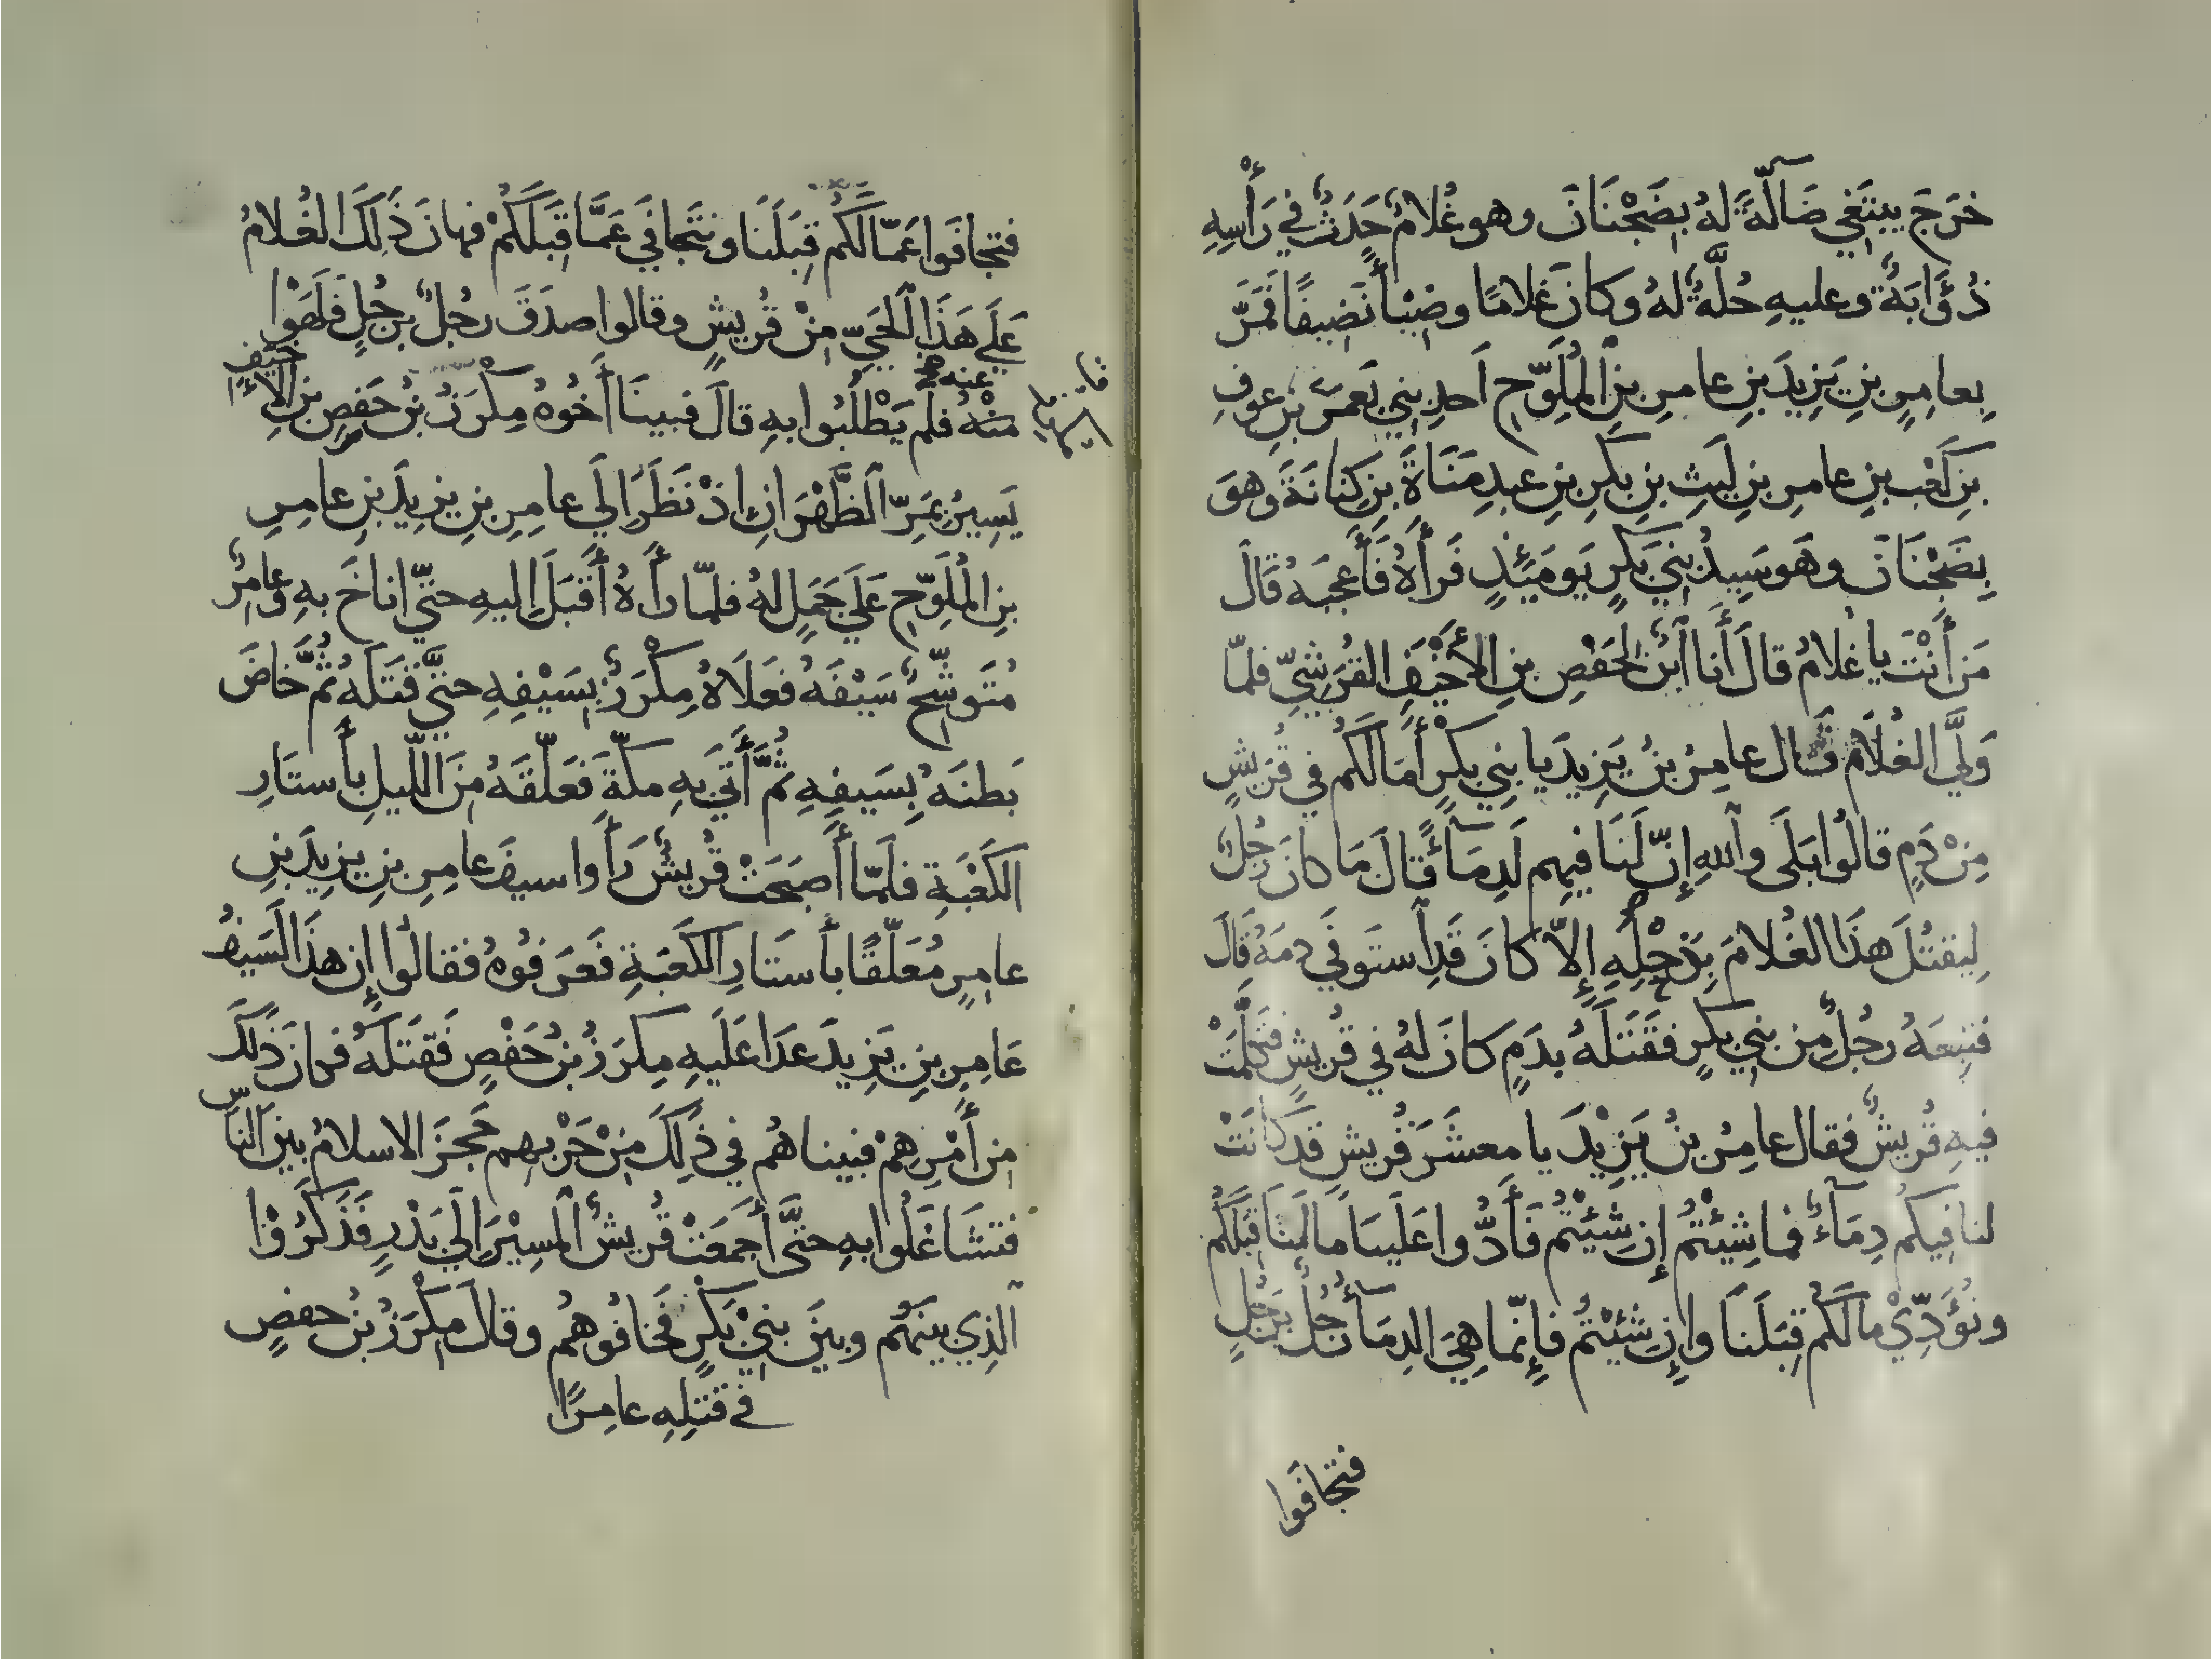 خَرَجَ يبتَغي ضَآلّةً لهُ بِضَجْنَانَ وهو غُلامٌ حَدَثٌ في رَأْسِهِ
ذُؤَابَةٌ وعليهِ حُلَّةٌ لهُ وكانَ غلامًا وضِيْأً نَضِيفًا فَمَرَّ
بِعامِرِ بنِ يَزِيدَ بنِ عامِرِ بنِ المُلَوّحِ أحدِ بني يَعمَرَ بنِ عوفِ
بنِ كَعْبِ بنِ عامرِ بنِ لَيثِ بنِ بَكرِ بنِ عبدِ مَنَاةَ بنِ كِنانَةَ وهوَ
بِضَجْنَانَ وهَو سَيِدُ بَنِي بَكرٍ يَومَئِذٍ فَرَأَهُ فَأَعجَبَهُ قَالَ
مَن أَنْتَ يا غُلامُ قالَ أنا ابنٌ لحَفْصِ بنِ الأَخْيَفِ القُرَشِيّ فلمّا
وَلَّي الغُلَامُ قَال عامِرُ بنُ يَزِيدَ يا بَنِي بكْرٍ أَمَا لَكُم في قُرَيشٍ
مِنْ دَمٍ قالُوا بَلَى واللهِ إِنّ لَنَا فيهِم لَدِمَآءً قَالَ مَا كانَ رَجُلٌ
لِيقتُلَ هذَا الغُلامَ بِرَجُلِهِ إِلاّ كانَ قَدِ استَوفَي دمَهُ قَالَ
فتبِعَهُ رَجُلٌ من بنِي بكرٍ فَقَتَلَهُ بدَمٍ كانَ لهُ في قُريشٍ فتَكَلّمَتْ
فيهِ قُريشٌ فقال عامِرُ بنُ يَزِيْدَ يا معشَرَ قُريشٍ قَد كانَتْ
لنا فِيكُم دِمَآءٌ فما شِئْتُم إِن شِئْتُم فَأَدُّوا عَلَينَا مَا لَنَا قِبَلَكُم
ونُؤَدّيْ مالَكُم قِبَلَنَا وإِن شِئْتُم فإِنّما هِيَ الدِمَآءُ رَجُلٌ بِرَجُلٍ
فتجافَوا
فتجافَوا عَمّا لَكُم قِبَلَنَا ونتَجافَي عَمَّا قِبَلَكُمْ فهانَ ذَلِكَ الغُلامُ
عَلَي هَذَا الحَيّ مِنْ قُريشٍ وقالوا صدَقَ رجُلٌ برَجُلٍ فَلَهَوْا
عنه
منْهُ فلَم يَطْلُبُوا بهِ قالَ فبينَا أَخُوهُ مِكْرَزُ بنُ حَفصِ بنِ الأخيَفِ
يَسِيرُ بمَرِّ الظَّهْرَانِ إذْ نَظَرَ إلَي عامِرِ بنِ يزِيدَ بنِ عامِرِ
بنِ المُلَوّحِ عَلَي جَمَلٍ لهُ فلمّا رأَهُ أَقبَلَ إليهِ حتّي اناخَ بهِ وعامِرٌ
مُتَوشّحٌ سَيْفَهُ فَعَلَاهُ مِكْرَزٌ بِسَيْفِهِ حتَّي قَتَلَه ثُمّ خَاضَ
بَطنَهُ بِسَيفِهِ ثُمَّ أَتَي بهِ مكّةَ فَعَلّقَهُ مِنَ اللّيلِ بأَستَارِ
الكَعْبَةِ فلَمّا أَصبَحَتْ قُريشٌ رَأَوا سيفَ عامِرِ بنِ يزِيدَ بنِ
عامِرٍ مُعَلّقًا بأَستَارِ الكَعَبةِ فَعَرَفوُهُ فقالُوا إِن هذَا لَسَيفُ
عَامِرِ بنِ يَزِيدَ عَدَا عَلَيهِ مِكرَزُ بنُ حَفْصٍ فَقتَلَهُ فكانَ ذَلكَ
مِن أَمْرِهمْ فبينا هُم في ذَلِكَ مِنْ حَرْبِهِم حَجَزَ الاسلامُ بينَ النّاسِ
فتشَاغَلُوا بهِ حتَّى أَجمَعَتْ قُريشٌ المسِيْرَ إلَي بَدْرٍ فَذَكَرُوْا
الّذِي بينَهُم وبينَ بنيْ بَكرٍ فَخافُوهُم وقالَ مِكْرَزُ بنُ حفصٍ
في قتلِهِ عامِرًا